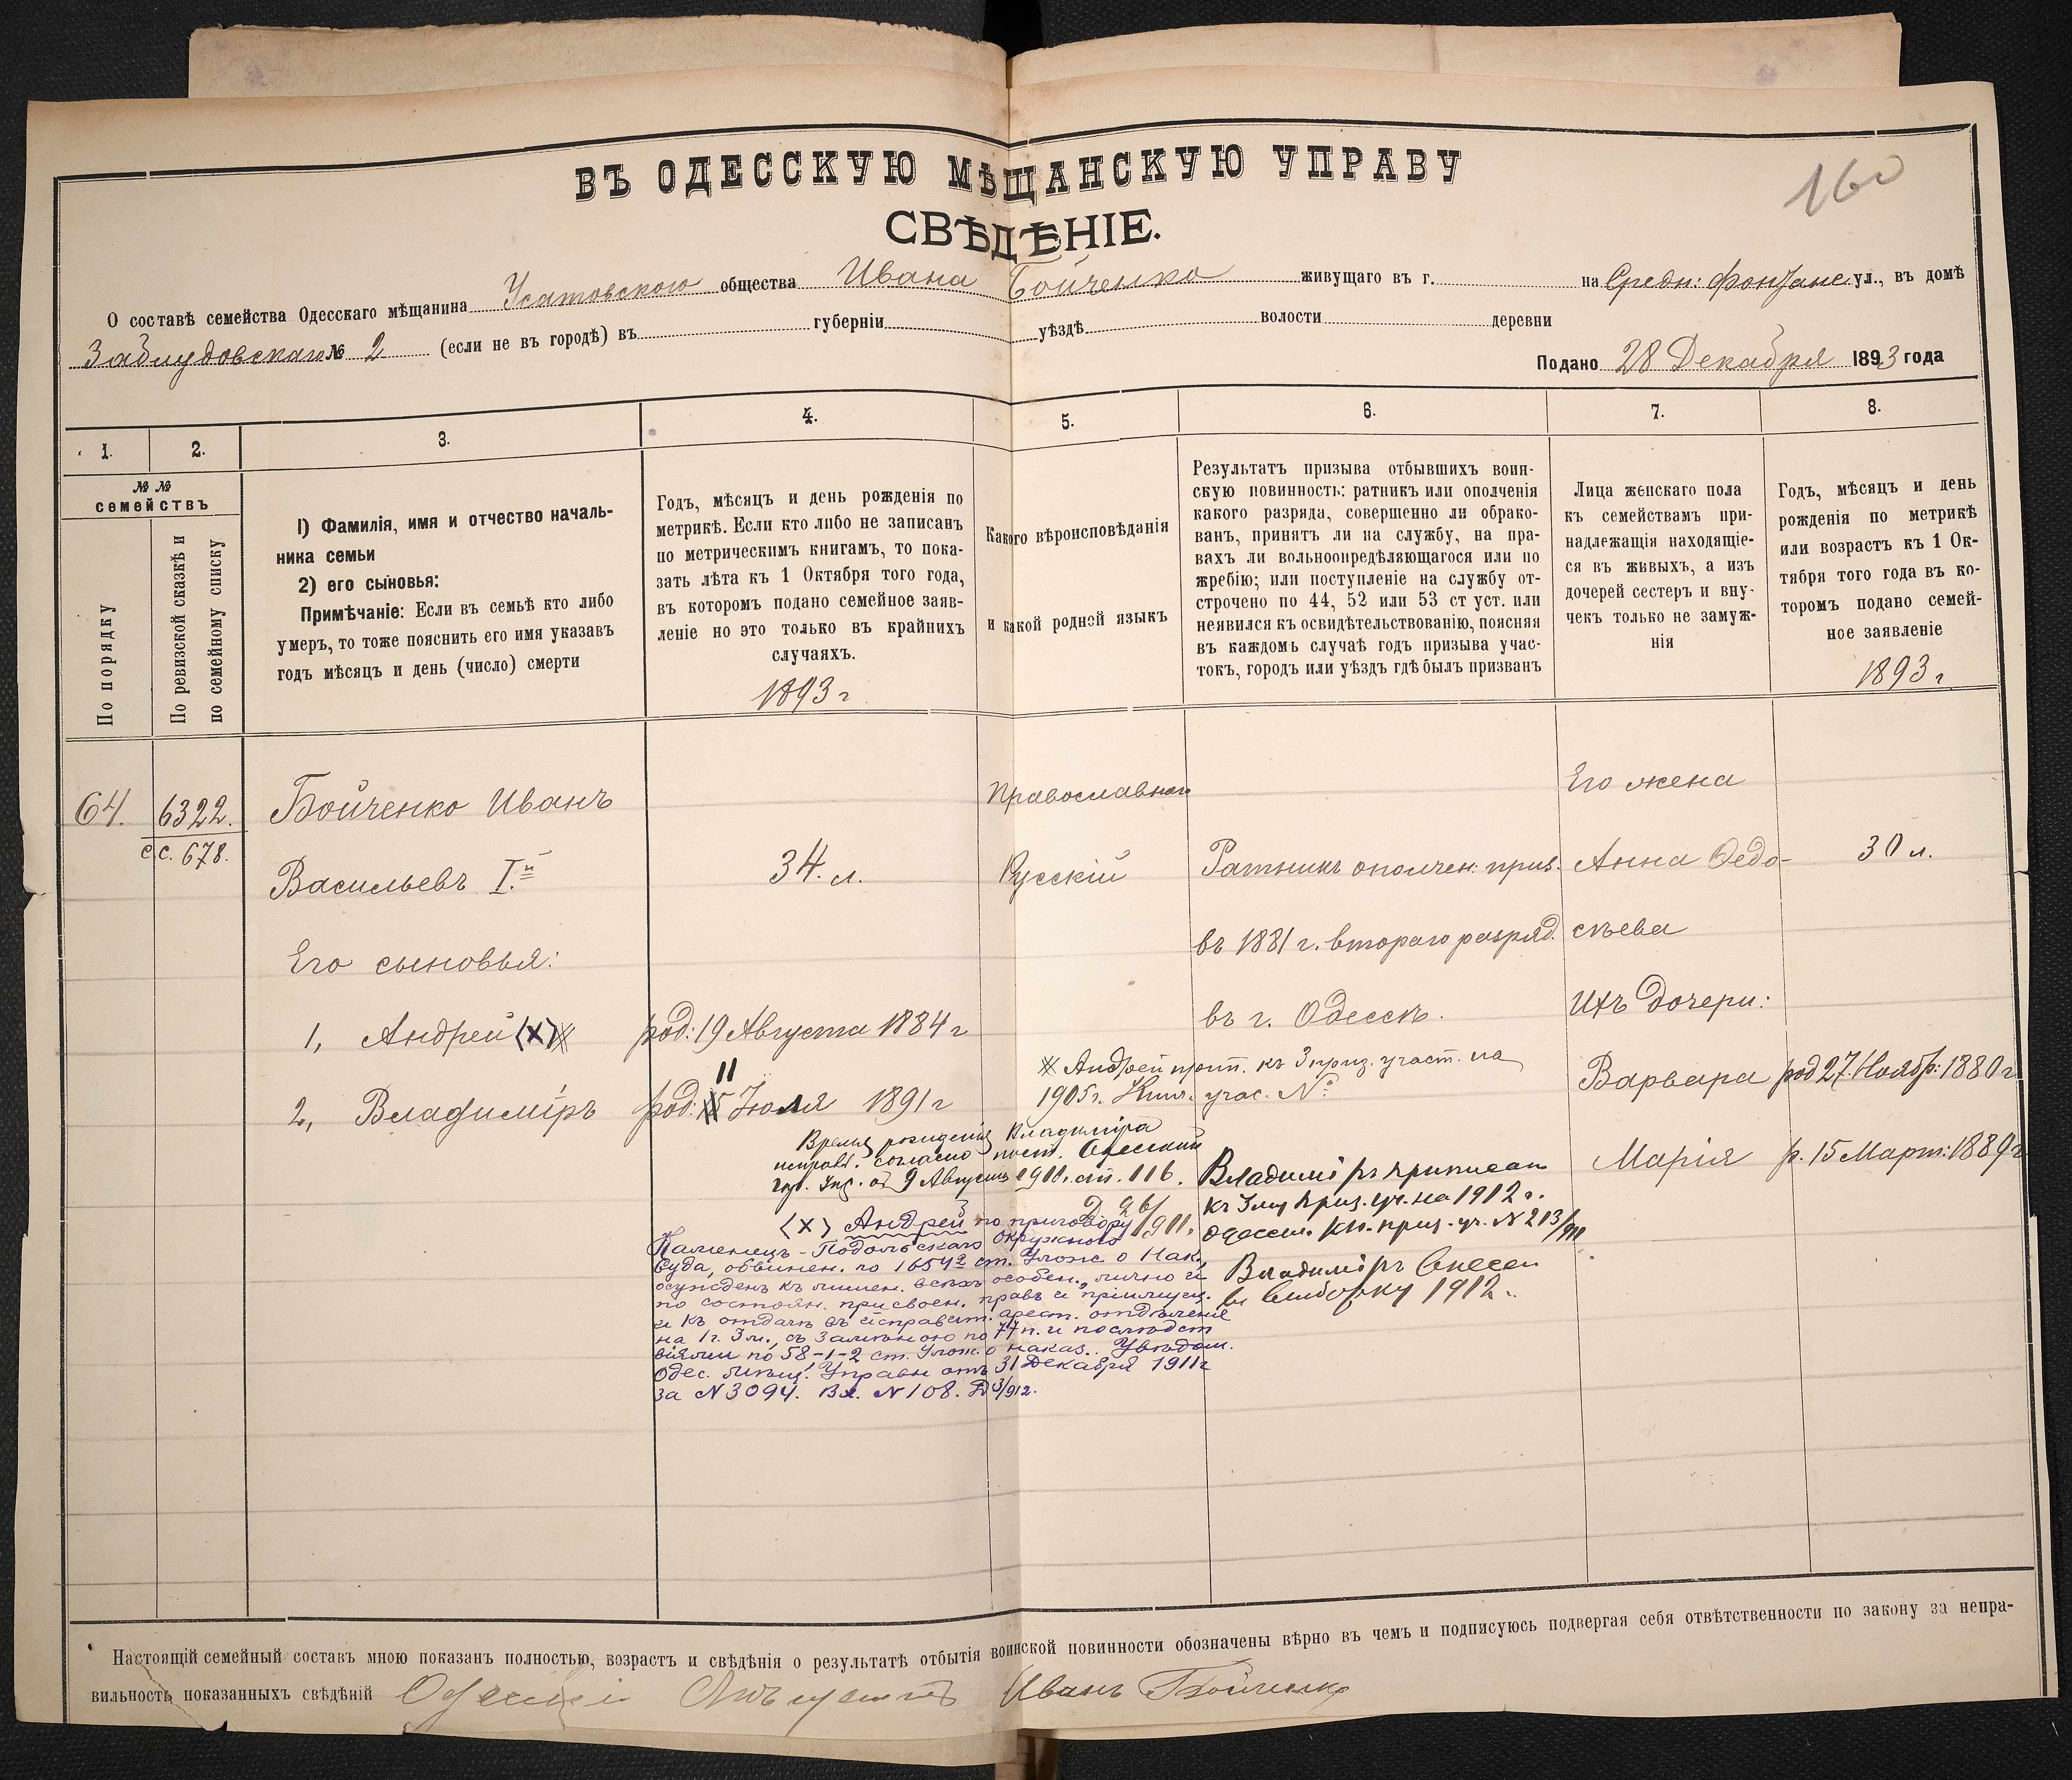 160
ВЪ ОДЕССКУЮ МѢЩАНСКУЮ УПРАВУ
СВѢДѢНІЕ.
О составѣ семейства Одесскаго мѣщанина Усатовскаго общества Ивана Бойченко живущаго въ г. на Средн: Фонтане ул., въ домѣ
Заблудовскаго № 2 (если не въ городѣ) въ губерніи уѣздѣ волости деревни
Подано 28 Декабря 1893 года
1. 2. 3. 4. 5. 6. 7. 8.
№ №
семействъ
По порядку
По ревизской сказкѣ и
по семейному списку
1) Фамилія, имя и отчество началь-
ника семьи
2) его сыновья:
Примѣчаніе: Если въ семьѣ кто либо
умеръ, то тоже пояснить его имя указавъ
годъ мѣсяцъ и день (число) смерти
Годъ, мѣсяцъ и день рожденія по
метрикѣ. Если кто либо не записанъ
по метрическимъ книгамъ, то пока-
зать лѣта къ 1 Октября того года,
въ которомъ подано семейное заяв-
леніе но это только въ крайнихъ
случаяхъ.
1893 г
Какого вѣроисповѣданія
и какой родной языкъ
Результатъ призыва отбывшихъ воин-
скую повинность: ратникъ или ополченія
какого разряда, совершенно ли обрако-
ванъ, принятъ ли на службу, на пра-
вахъ ли вольноопредѣляющагося или по
жребію; или поступленіе на службу от-
строчено по 44, 52 или 53 ст уст. или
неявился къ освидѣтельствованію, поясняя
въ каждомъ случаѣ годъ призыва учас-
токъ, городъ или уѣздъ гдѣ былъ призванъ
Лица женскаго пола
къ семействамъ при-
надлежащія находящіе-
ся въ живыхъ, а изъ
дочерей сестеръ и вну-
чекъ только не замуж-
нія
Годъ, мѣсяцъ и день
рожденія по метрикѣ
или возрастъ къ 1 Ок-
тября того года въ ко-
торомъ подано семей-
ное заявленіе
1893 г
64. 6322.
с.с. 678.
Бойченко Иванъ
Васильевъ I.й
34. л.
Православнаго
Русскій
Ратникъ ополчен: приз.
въ 1881 г. втораго разряд.
въ г. Одессѣ.
Его жена
Анна Федо-
сѣева
30 л.
Его сыновья:
1, Андрей (х) ж
род: 19 Августа 1884 г
Ихъ дочери:
ж Андрей прип. къ 3 приз. участ. на
1905 г. учас. №
11
2, Владиміръ
род: Іюля 1891 г
Варвара род 27 Ноябр: 1880 г
Марія р. 15 Март: 1889 г
Время рожденія Владиміра
исправл. согласно пост. Одесской
гор. Упр. от 9 Августа 1911. ст. 116.
Д 26/911.
Владиміръ приписан
къ 3му приз. уч. на 1912 г.
Одесск. Кн. приз. уч. N 213/911
Владиміръ внесен
в выборку 1912 г.
(х) Андрей по приговору
Каменецъ-Подольскаго Окружного
Суда, обвинен. по 1654² ст. Улож. о Нак.
осужденъ къ лишен. всѣхъ особен., лично и
по состоян. присвоен. правъ и преимущ.
и къ отдачѣ въ исправит. арест. отдѣленіе
на 1 г. 3 м., съ замѣною по 77 п. и послѣдст
віями по 58-1-2 ст. Улож. о наказ. Увѣдом.
Одес. Мѣщ. Управы отъ 31 Декабря 1911 г
за N 3094. Вх. N 108. Д 3/912.
Настоящій семейный составъ мною показанъ полностью, возрастъ и свѣдѣнія о результатѣ отбытія воинской повинности обозначены вѣрно въ чемъ и подписуюсь подвергая себя отвѣтственности по закону за непра-
вильность показанныхъ свѣдѣній Одескій Иванъ Бойченко